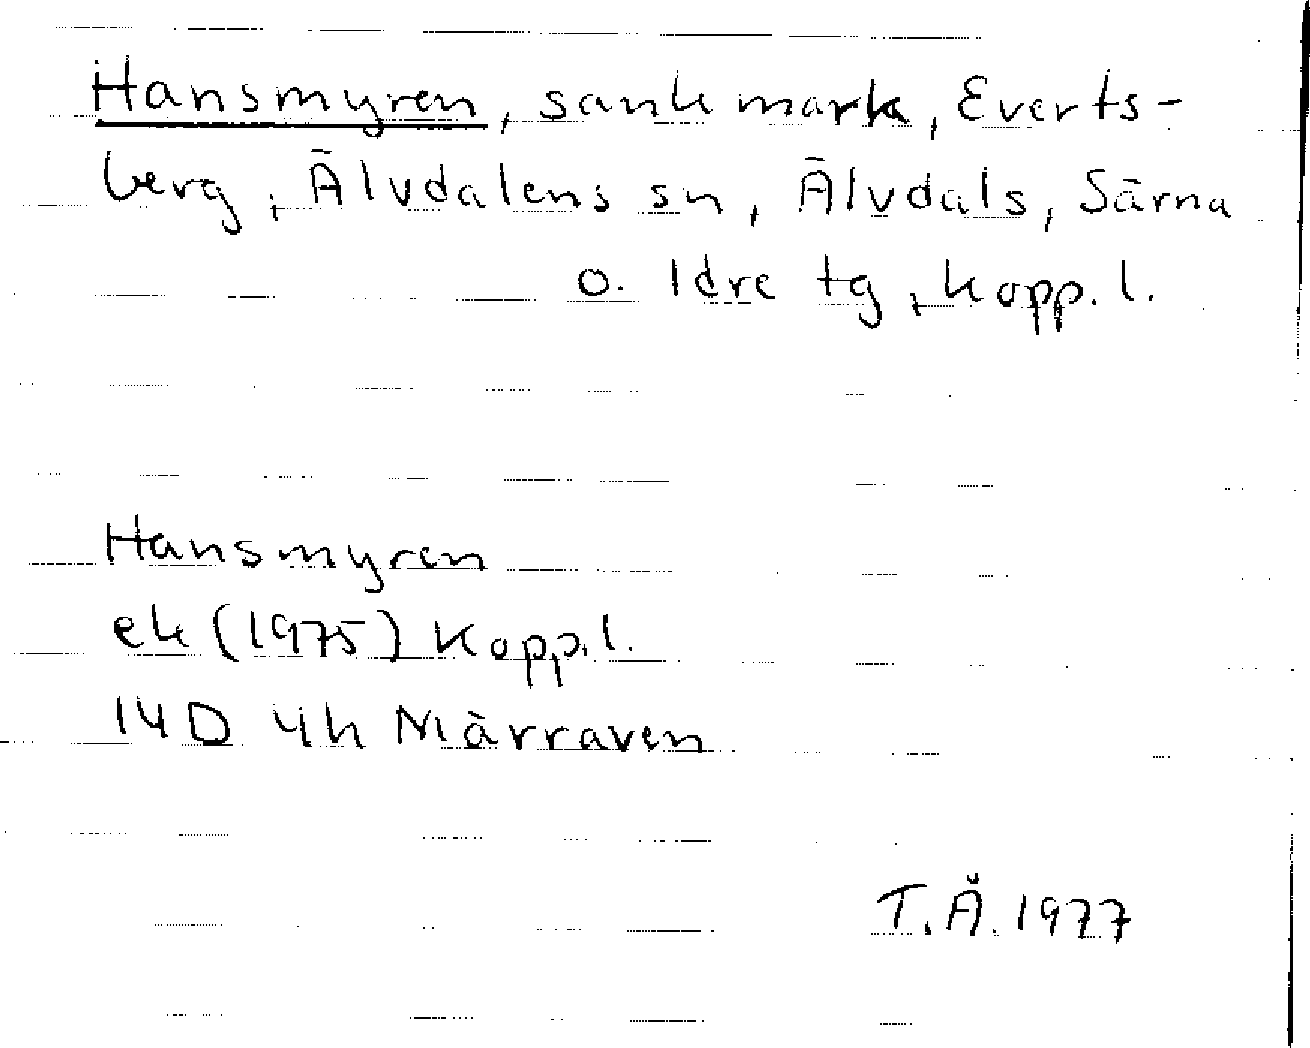 Hansmyren, sank mark, Everts-
berg, Älvdalens sn, Älvdals, Särna
o. Idre tg, Kopp. l.
Hansmyren
ek (1975) Kopp. l.
14D 4h Märraven
T.Å. 1977